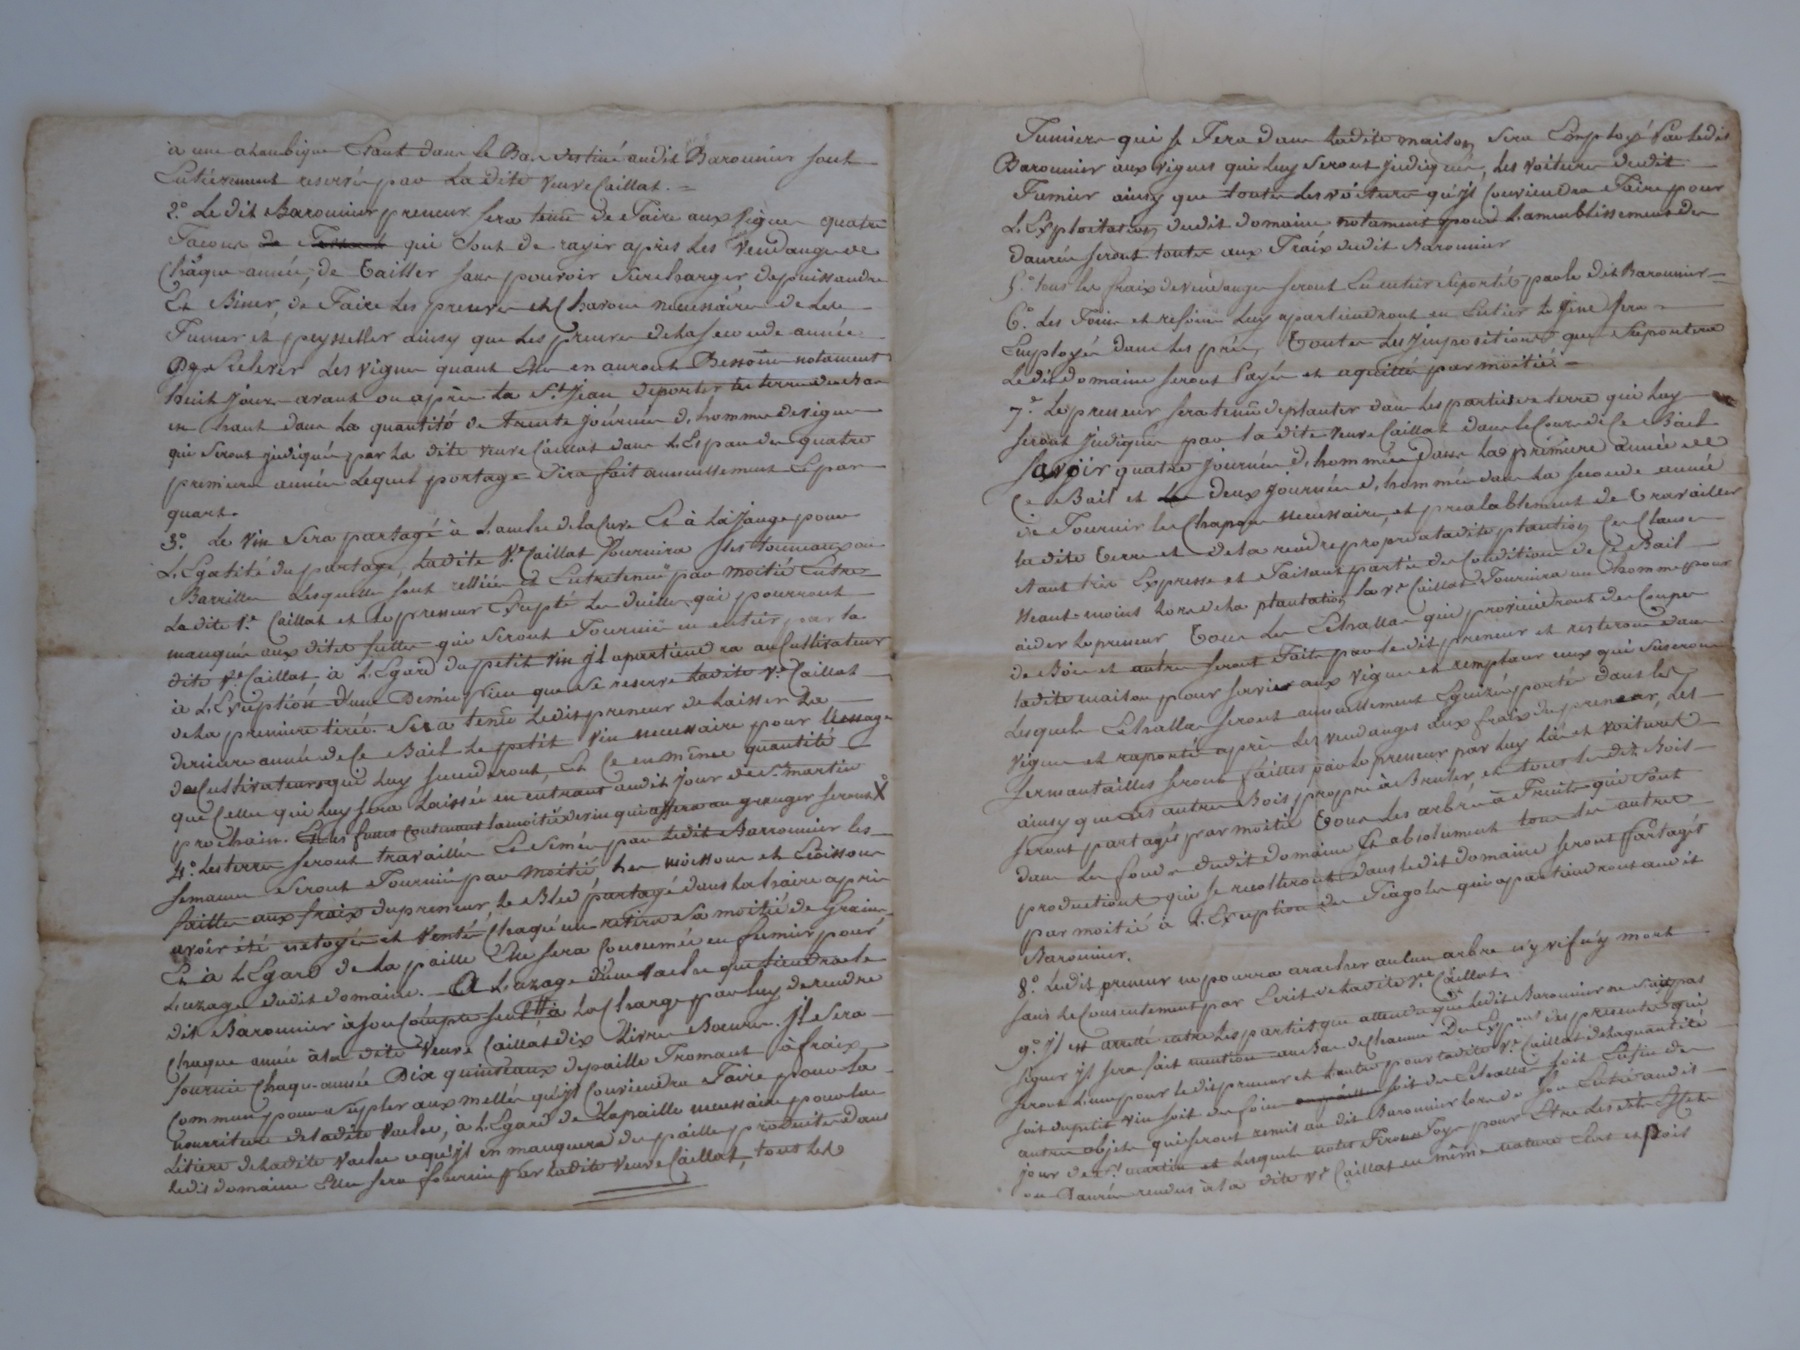 a une alambique Etant dans le Bas destiné audit Barounier sont
Entierement reservé par la dite veuve Caillat. =
2.° Le dit Barounier preneur sera tenû de faire aux vignes quatre
facons qui sont de rayer apres les vendanges de
Chaque année, de tailler sans pouvoir surcharger
Et Biner, de faire les preuves et Chavons necessaires de les
fumer et peysseller ainsy que les preuves de la seconde année
Relever les vignes quant Elles en auront Bessoin notament
huit jours avant ou après la S.t Jean deporter les terres de Bas
en haut dans la quantité de trente journées d'homme de vignes
qui seront jndiqués par la dite veuve Caillat dans l'Espau des quatre
premiere année lequel portage sera fait annuellement Et par
quart.
3.° Le vin sera partagé à l'anche de la Cuve Et à la Jauge pour
L'Egalité du partage, ladite V.e Caillat fournira les tonneaux ou
Barrilles lesquelles sont relliées et Entretenuë par moitié Entre
la dite V.e Caillat et le preneur Excepté les duilles qui pourront
manquer aux dites futtes qui seront fournie en entier par la
dite V.e Caillat à l'Egard du petit vin jl apartiendra au Cultivateur
à l'Exception d'une Demie piece que se reserve ladite V.e Caillat
de la premiere tirée. Sera tenû ledit preneur de laisser la
derniere année de ce Bail le petit vin necessaire pour l'usage
des Cultivateurs qui luy succederont, Et ce en même quantité
que Celle qui luy sera laissée en entrant audit jour de S.t martin
prochain. les futes contenant la moitié de vin qui affera au granger seront X
4.° Les terres seront travaillée Et Semée par ledit Barounier les
semances seront fournie par moitié les moissons et
faittes aux frais du preneur le Bled partagé dans la haire après
avoir été netogé et venté Chaqu'un retirera sa moitié de Grain
Et à l'Egard de la paille Elle sera Consumée en fumier pour
L'uzage dudit domaine. A l'uzage d'une vache que tiendra le
dit Barounier à son Compte seul à la Charge par luy de rendre
Chaque année à la dite veuve Caillat dix livres Beurre. jl sera
fournie Chaque année Dix quinteaux de paille fromant à fraix
Commun pour supler aux mellée qu'jl Conviendra faire pour la
nourriture de la dite vache, à l'Egard de la paille necessaire pour la
Litiere de la dite vache s'jl en manquera de paille produite dans
ledit domaine Elle sera fournie par ladite veuve Caillat, tous les
fumiers qui se fera dans ladite maison sera Employé par ledit
Barounier aux vignes qui luy seront jndiqués, les voitures dudit
fumier ainsy que toutes les voitures qu'jl Conviendra faire pour
L'Exploitation dudit domaine notament pour L'ameublissement des
danrée seront toutes aux fraix dudit Barounier
5.° tous les fraix de vendange seront En entier suporté par le dit Barounier
6.° Les foins et refoins luy apartiendront en Entier
Employée dans les prés, toutes les jmpositions que suportera
ledit domaine seront Payée et aquittée par moitié.
7.° Le preneur sera tenû de planter dans les parties de terre qui luy
seront jndiquée par la dite veuve Caillat dans le Cour de Ce Bail
savoir quatre journées d'hommée dans la premiere année de
Ce Bail et deux journées d'hommée dans la seconde année
de fournir les Chapons necessaire, et prealablement de travailler
la dite terre et de la rendre propre a ladite plantion Ces Clauses
Etant très Expresse et faisant partie des Conditions de Ce Bail
Neant-moins lors de la plantation la V.e Caillat fournira un homme pour
aider le preneur tous les Echallas qui proviendront des Coupes
de Bois et autres seront faits par le dit preneur et resteront dans
ladite maison pour servir aux vignes en remplace ceux qui s'userons
Lesquels Echallas seront annuellement Eguizé, porté dans les
vignes et raporté après les vendanges aux frais du preneur, les
sermantailles seront faittes par le preneur par luy liés et voituret
ainsy que les autres Bois propre à Bruler, et tous ledit Bois
seront partagés par moitié tous les arbre à fruits qui sont
dans les fonds dudit domaine Et absolument toutes autres
productions qui se recolteront dans ledit domaine seront Partagés
par moitié à l'Exception des fiagoles qui apartiendront audit
Barounier.
8.° Ledit preneur ne pourra aracher aucun arbre n'y vif n'y mort
sans le Consentement par Ecrit de ladite V.e Caillat.
9.° Jl est arretté entre les parties que attendu que ledit Barounier ne sait pas
signer jl sera fait mention au Bas de Chacune Des Exp.ons des presentes qui
seront l'une pour ledit preneur et l'autre pour ladite V.e Caillat de la quantité
soit du petit vin soit des foins soit des Echallas soit Enfin des
autres objets qui seront remis au dit Barounier lors de son Entré audit
jour de S.t martin et lesquels pour Etre lesdits objets
ou danrées rendus à la dite V.e Caillat en même nature Clos et pois